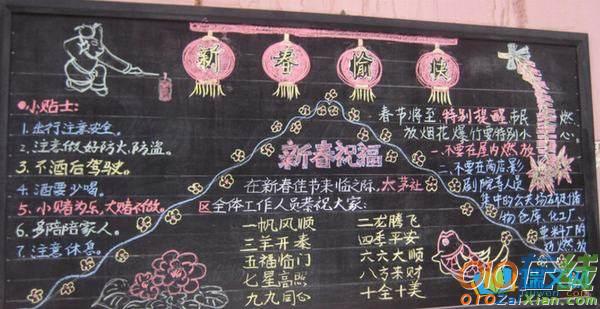 新春愉快
小贴士:
1.出行注意安全。
2.注意做好防火、防盗。
3.不酒后驾驶。
4.酒要少喝。
5.小赌为乐,大赌不做。
6.多陪陪家人。
7.注意休息。
新春祝福
在新春佳节来临之际,太茅社
区全体工作人员恭祝大家:
一帆风顺 二龙腾飞
三羊开泰 四季平安
五福临门 六六大顺
七星高照 八方来财
九九同心 十全十美
春节将至 特别提醒市民 燃
放烟花爆竹要特别小心。
一.不要在屋内燃放
二.不要在商店、影
剧院等人员
集中的公共场
物仓库、化工厂、
燃放
在线
OlOZaiXian.com